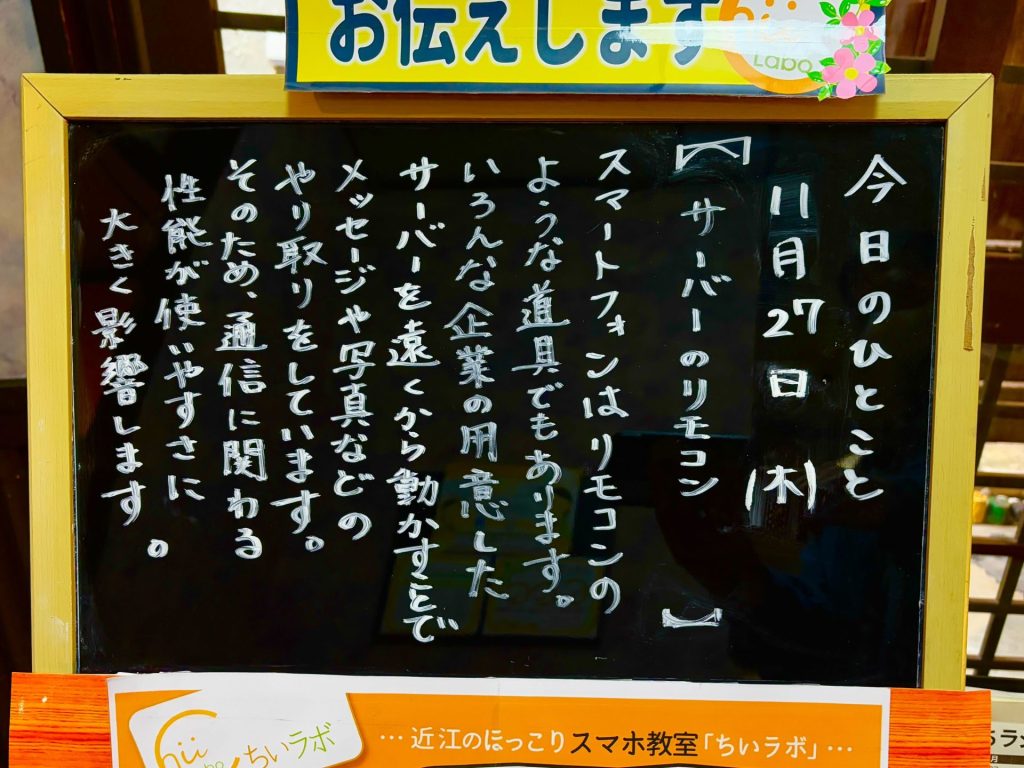 お伝えします
Labo
今日のひとこと
11月27日(木)
【サーバーのリモコン】
スマートフォンはリモコンの
ような道具でもあります。
いろんな企業の用意した
サーバーを遠くから動かすことで
メッセージや写真などの
やり取りをしています。
そのため、通信に関わる
性能が使いやすさに
大きく影響します。
ちいラボ
…近江のほっこりスマホ教室「ちいラボ」…